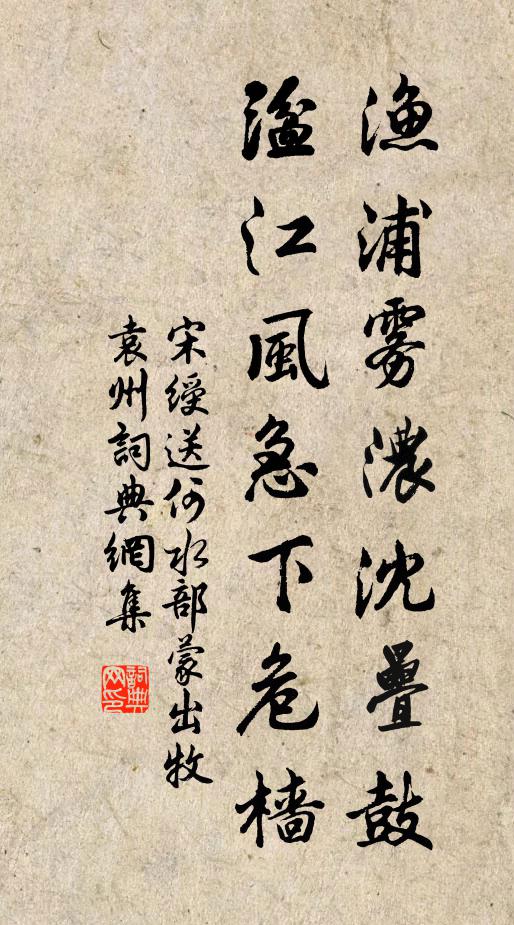 漁浦雾濃沈疊鼓
湓江風急下危檣
宋綬送何水部蒙出牧
袁州詞典網集
詞典网印